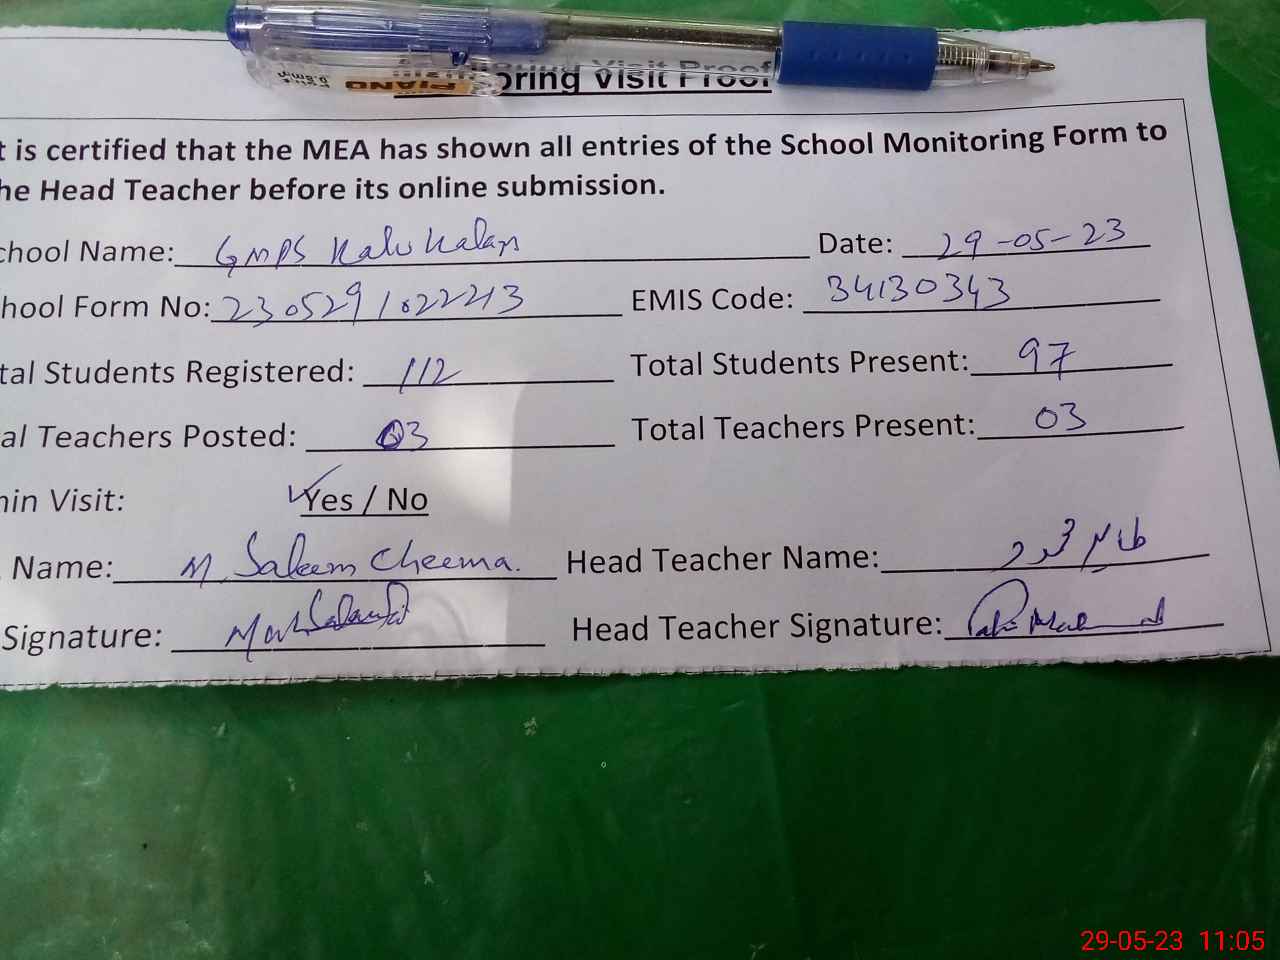 PIANO
oring Visit Proof
t is certified that the MEA has shown all entries of the School Monitoring Form to
he Head Teacher before its online submission.
chool Name: GMPS Kalu Kalan Date: 29-05-23
hool Form No: 2305291022213 EMIS Code: 34130343
tal Students Registered: 112 Total Students Present: 97
al Teachers Posted: 03 Total Teachers Present: 03
nin Visit: Yes / No
Name: M. Saleem Cheema. Head Teacher Name: طاہر محمود
Signature: Head Teacher Signature:
29-05-23 11:05